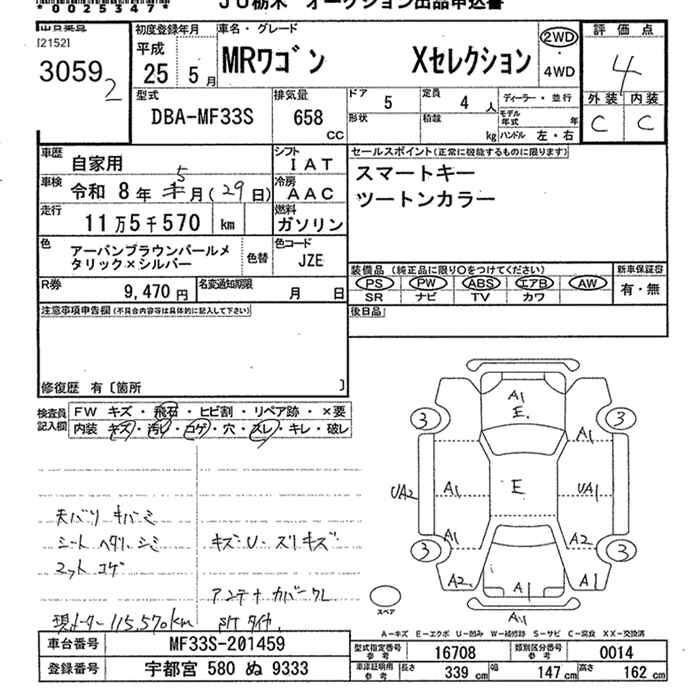 *0025347*
JU栃木 オークション出品申込書
[2152]
30592
初度登録年月
平成
25 5月
車名・グレード
MRワゴン Xセレクション
2WD
・
4WD
評価点
4
外装 内装
C C
型式
DBA-MF33S
排気量
658
CC
ドア 5
形状
定員 4 人
積載 kg
ディーラー・並行
モデル年式 年
ハンドル 左・右
車歴 自家用
シフト IAT
車検 令和 8年 5月(29日)
冷房 AAC
走行 11万5千570 km
燃料 ガソリン
色 アーバンブラウンパールメタリック×シルバー
色替
色コード JZE
R券 9,470円
名変通知期限 月 日
セールスポイント(正常に機能するものに限ります)
スマートキー
ツートンカラー
装備品(純正品に限り○をつけてください)
PS PW ABS エアB AW
SR ナビ TV カワ
新車保証書
有・無
後日品
注意事項申告欄(不具合内容等は具体的に記入して下さい)
修復歴 有〔箇所 〕
検査員記入欄
FW キズ・飛石・ヒビ割・リペア跡・×要
内装 キズ・汚レ・コゲ・穴・スレ・キレ・破レ
天バリ キバミ
シート ヘタリ シミ
マット コゲ
キズU スリキズ
アンテナカバークレ
現メーター 115,570km P/Tタイヤ
A1
E
3 3
A1
UA2 A1 E UA1
A1 A2
3 3
A2 A1 A1
A1
スペア
A-キズ E-エクボ U-凹み W-補修跡 S-サビ C-腐食 XX-交換済
車台番号 MF33S-201459
登録番号 宇都宮 580 ぬ 9333
型式指定番号 参考 16708
類別区分番号 参考 0014
車庫証明用 参考 長さ 339 cm 幅 147 cm 高さ 162 cm